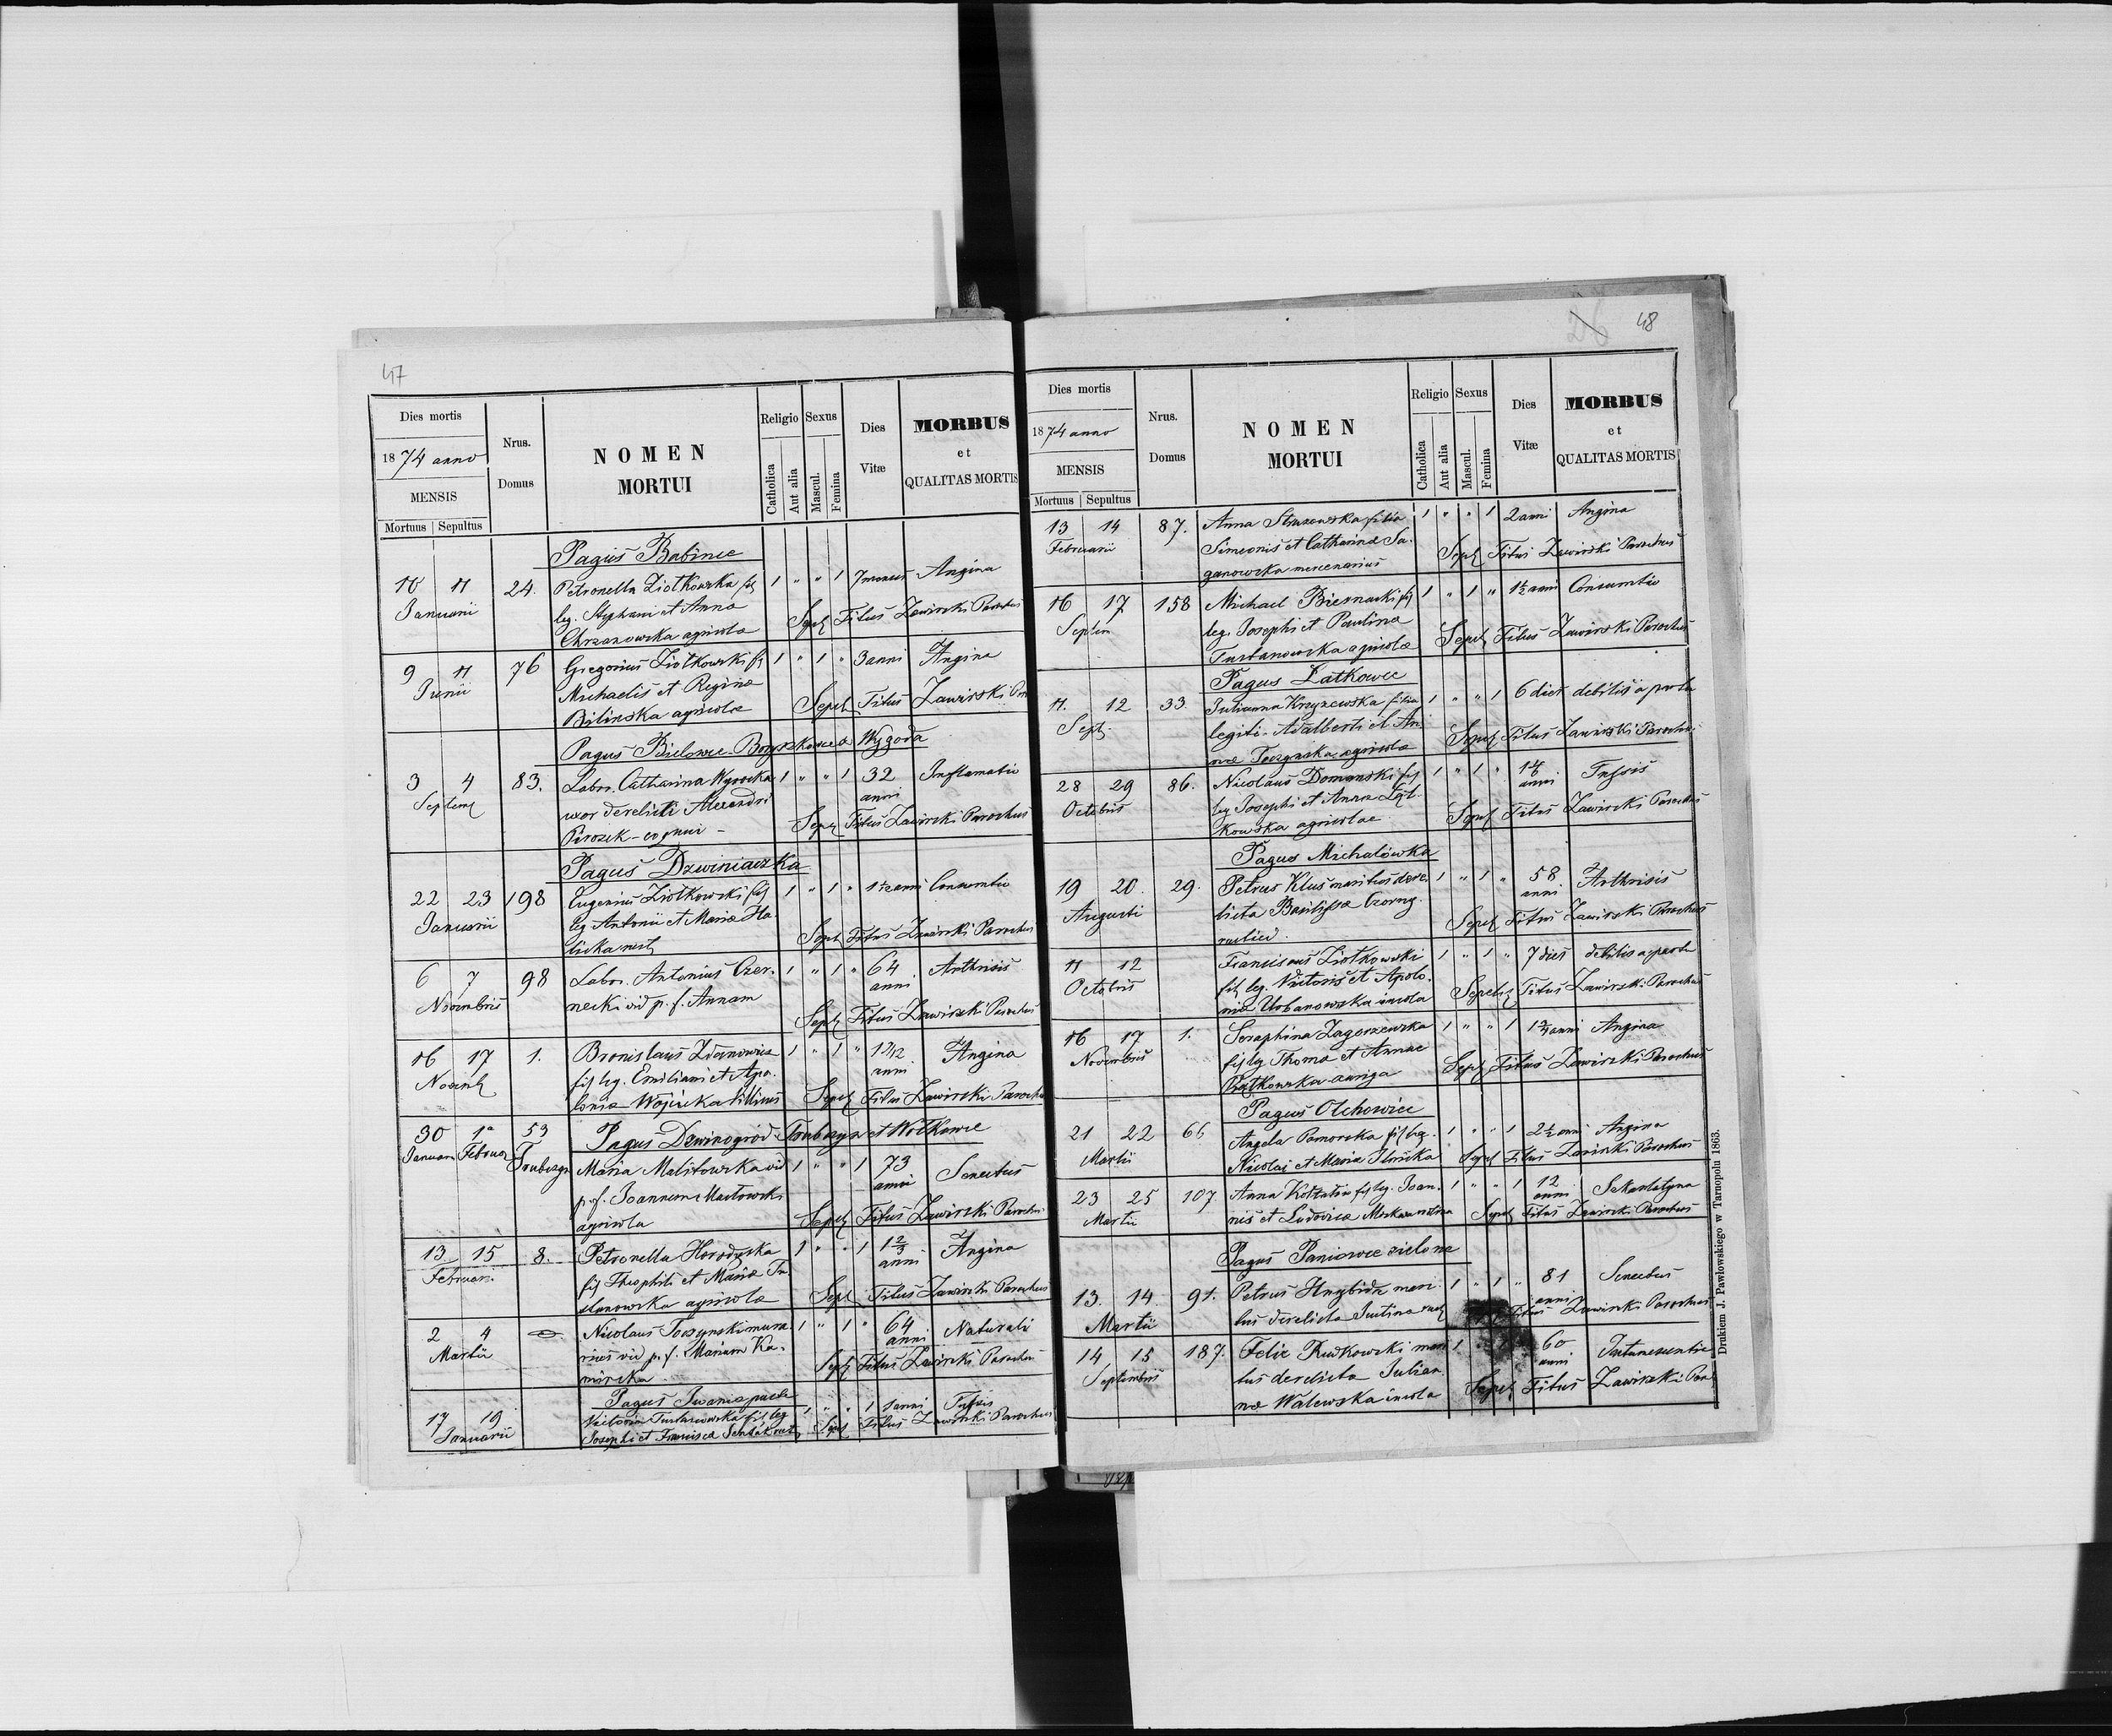 47
Dies mortis
Nrus.
Domus
NOMEN
MORTUI
Religio
Sexus
Dies
Vitæ
MORBUS
et
QUALITAS MORTIS
1874 anno
MENSIS
Mortuus Sepultus
Catholica
Aut alia
Mascul.
Femina
Pagus Babince
10 11 24. Petronella Ziołkowska fil 1 " " 1 7 menses Angina
Januarii leg. Stephani et Anna Sepel Titus Zawirski Parochus
Chrzanowska agricolæ
9 11 76 Gregorius Ziołkowski fil 1 " 1 " 3 anni Angina
Junii Michaelis et Reginæ Sepel Titus Zawirski Par
Bilinska agricolæ
Pagus Bielowce Boryszkowce Wygoda
3 4 83. Labor. Catharina Wysocka 1 " " 1 32 anni Inflamatio
Septem uxor derelicti Alexandri Sepel Titus Zawirski Parochus
Pirozek
Pagus Dzwiniaczka
22 23 198 Eugenius Ziołkowski fil 1 " 1 " 1 1/2 anni Consumtio
Januarii leg Antonii et Mariæ Ha Sepel Titus Zawirski Parochus
licka
6 7 98 Labor. Antonius Czer- 1 " 1 " 64 anni Arthrisis
Novembris necki vid p. f. Annam Sepel Titus Zawirski Parochus
16 17 1. Bronislaus Zdanowicz 1 " 1 " anni Angina
Novemb fil leg. Emiliani et Apo- Sepel Titus Zawirski Parochus
loniæ Wojcicka villicus
30 1a 53 Pagus Dzwinogród Trubczyn et Wołkowce
Januari Februar Trubczyn Maria Malitowska vid 1 " " 1 73 anni Senectus
p. f. Joannem
agricola Sepel Titus Zawirski Parochus
13 15 8. Petronella Horodyska 1 " " 1 1 2/3 anni Angina
Februari fil Theophili et Mariæ Tu- Sepel Titus Zawirski Parochus
stanowska agricolæ
2 4 Nicolaus Toczynski mura- 1 " 1 " 64 anni Naturali
Martii rius vid p. f. Mariam Ka- Sepel Titus Zawirski Parochus
mirska
Pagus Iwaniapuste
17 19 Victoria fil leg 1 " " 1 1 anni Tussis
Januarii Josephi et Francisca Sepel Titus Zawirski Parochus
26 48
Dies mortis
Nrus.
Domus
NOMEN
MORTUI
Religio
Sexus
Dies
Vitæ
MORBUS
et
QUALITAS MORTIS
1874 anno
MENSIS
Mortuus Sepultus
Catholica
Aut alia
Mascul.
Femina
13 14 87. Anna filia 1 " " 1 2 anni Angina
Februarii Simeonis et Catharinæ Sa- Sepel Titus Zawirski Parochus
ganowska mercenarius
16 17 158 Michael Biernacki fil 1 " 1 " 1 1/2 anni Consumtio
Septem leg. Josephi et Paulina Sepel Titus Zawirski Parochus
Tustanowska agricolæ
Pagus Latkowce
11. 12 33 Julianna Krzyzewska filia 1 " " 1 6 dies debilis a partu
Sept. legiti. Adalberti et An- Sepel Titus Zawirski Parochus
næ agricolæ
28 29 86. Nicolaus Domanski fil 1 " 1 " 14 anni Tussis
Octobris leg Josephi et Annæ Sepel Titus Zawirski Parochus
kowska agricolae
Pagus Michałówka
19 20. 29. Petrus Klus maritus dere- 1 " 1 " 58 anni Arthrisis
Augusti licta Basilissæ Czorny Sepel Titus Zawirski Parochus
rustici.
11 12 Franciscus Ziołkowski 1 " 1 " 7 dies debilis a partu
Octobris fil leg. Victoris et Apolo- Sepel Titus Zawirski Parochus
niæ Urbanowska incola
16 17 1. Seraphina Zagorzewska 1 " " 1 anni Angina
Novembris fil leg Thomæ et Annae Sepel Titus Zawirski Parochus
auriga
Pagus Olchowiec
21 22 66 Angela Pomorska fil leg. 1 " " 1 2 1/2 anni Angina
Martii Nicolai et Maria Sepel Titus Zawirski Parochus
23 25 107. Anna fil leg. Joan- 1 " " 1 12 anni Szkarlatyna
Martii nis et Ludovica Sepel Titus Zawirski Parochus
Pagus Paniowce zielone
13. 14. 91. Petrus Hrybidz mari- 1 " 1 " 81 anni Senectus
Martii tus derelicta Justina Titus Zawirski Parochus
14 15 187. Felix Rudkowski mari 1 60 anni
Septembris tus derelicta Julian- Sepel Titus Zawirski Par
næ Walewska incola
Drukiem J. Pawłowskiego w Tarnopolu 1863.